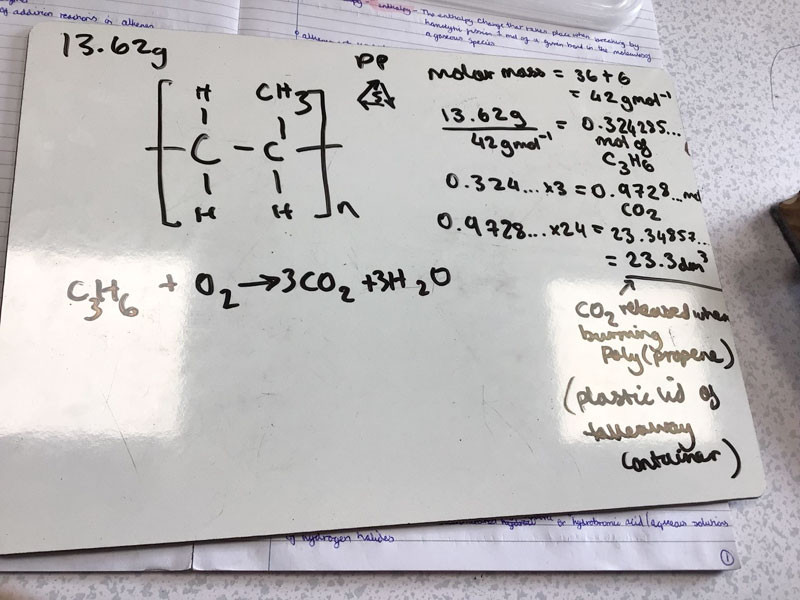 of addition reactions in alkenes
enthalpy - The enthalpy change that takes place when breaking by
homolytic fission 1 mol of a given bond in the molecules of
a gaseous species
13.62g
PP
5
[ H CH3 ]
- C - C -
H H n
C3H6 + O2 → 3CO2 + 3H2O
molar mass = 36 + 6
= 42 gmol⁻¹
13.62g / 42gmol⁻¹ = 0.324285...
mol of
C3H6
0.324... x3 = 0.9728... mol
CO2
0.9728... x24 = 23.34857...
= 23.3dm³
CO2 released when
burning
Poly(propene)
(plastic lid of
takeaway
container)
or hydrobromic acid (aqueous solutions
of hydrogen halides
1